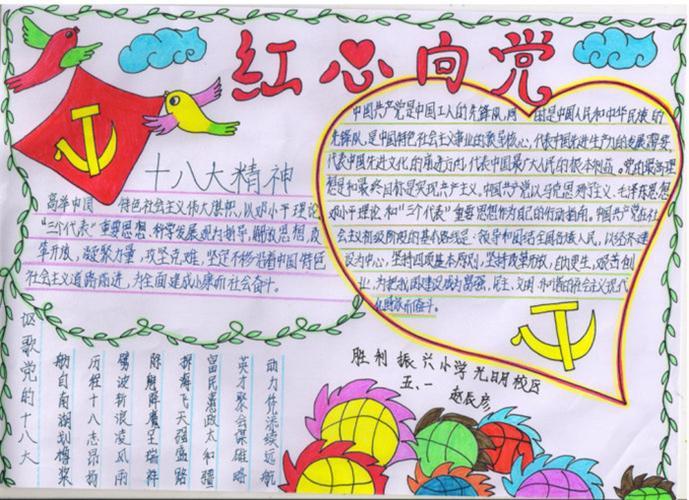 红心向党
十八大精神
高举中国特色社会主义伟大旗帜，以邓小平理论
"三个代表"重要思想，科学发展观为指导，解放思想，改
革开放，凝聚力量，攻坚克难，坚定不移沿着中国特色
社会主义道路前进，为全面建成小康而社会奋斗。
中国共产党是中国工人的先锋队，同 由是中国人民和中华民族的
先锋队，是中国特色社会主义事业的领导核心，代表中国先进生产力的发展需要，
代表中国先进文化的前进方向，代表中国最广大人民的根本利益。党的最高理
想是和最终目标是实现共产主义，中国共产党以马克思列宁主义、毛泽东思想
邓小平理论和"三个代表"重要思想作为自己的行动指南，中国共产党在社
会主义初级阶段的基本路线是：领导和团结全国各族人民，以经济建
设为中心，坚持四项基本原则，坚持改革开放，自力更生，艰苦创
业，为把我国建设成为富强、民主、文明、和谐的社会主义现代
化强旅而奋斗。
讴歌党的十八大
舫自南湖划樽桨
历程十八志昂扬
劈波斩浪凌风雨
除魔降魔呈瑞祥
探海飞天强盛路
富民惠政太和疆
英才聚会谋雄略
动力传流续远航
胜利振兴小学光明校区
五、一 赵辰彦